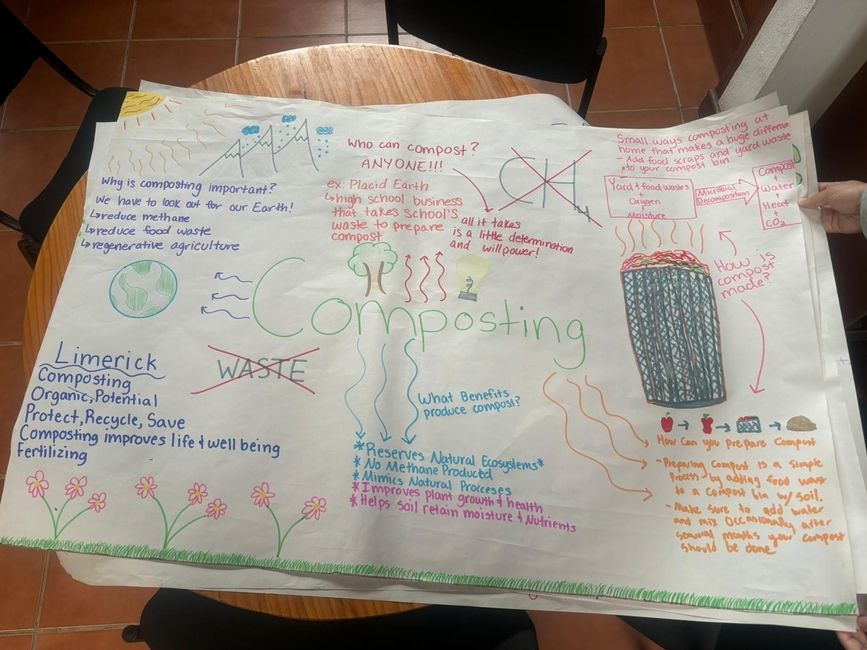 Why is composting important?
We have to look out for our Earth!
↳reduce methane
↳reduce food waste
↳regenerative agriculture
Who can compost?
ANYONE!!!
ex: Placid Earth
↳high school business
that takes school's
waste to prepare
compost
all it takes
is a little determination
and willpower!
CH4
Small ways composting at
home that makes a huge difference
- Add food scraps and yard waste
to your compost bin
Yard + food wastes
+
Oxygen
+
Moisture
Microbial
Decomposition
Compost
+
Water
+
Heat
+
CO2
How is
compost
made?
Composting
WASTE
Limerick
Composting
Organic, Potential
Protect, Recycle, Save
Composting improves life + well being
Fertilizing
What Benefits
produce compost?
*Reserves Natural Ecosystems*
* No Methane Produced
* Mimics Natural Procceses
* Improves plant growth + health
* Helps soil retain moisture + Nutrients
How Can you Prepare Compost
- Preparing compost is a simple
Process by adding food wast
to a compost bin w/ soil.
- Make sure to add water
and mix occasionally after
several months your compost
should be done